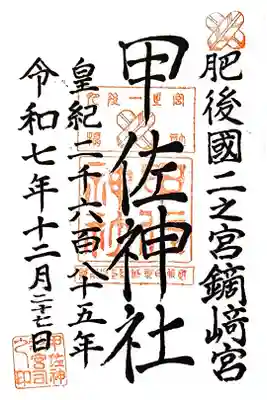 肥後國二之宮鏑﨑宮
甲佐神社
皇紀二千六百八十五年
令和七年十二月二十七日
甲佐神
社宮司
之印